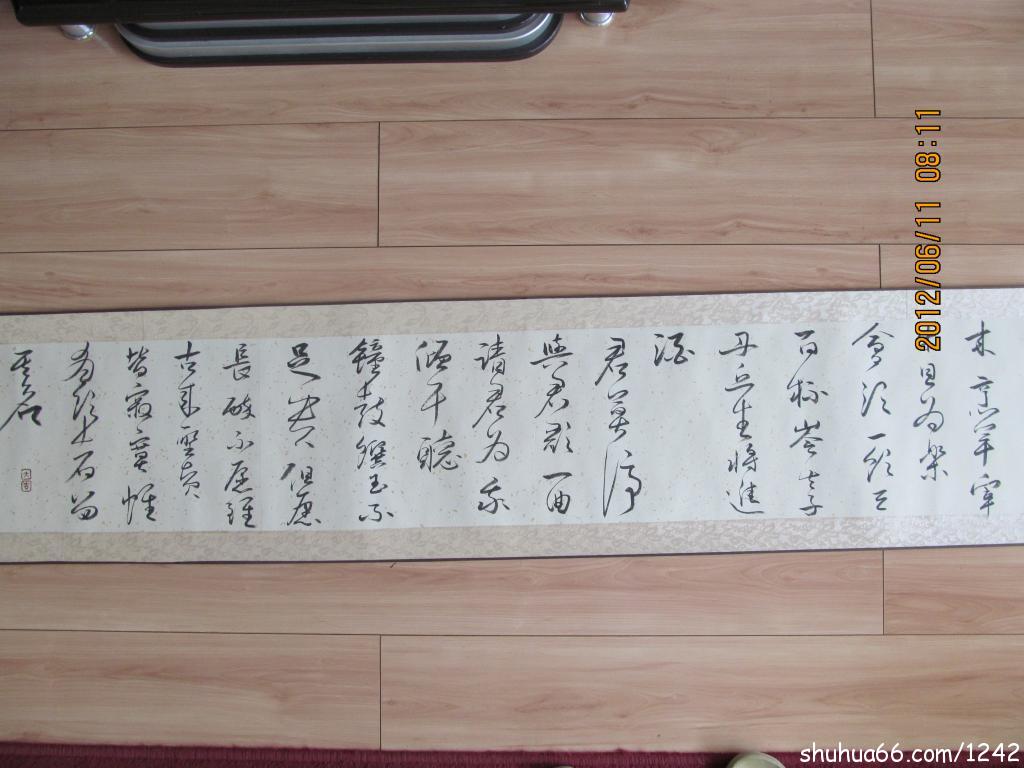 来烹羊宰
牛且为樂
會須一飲三
百杯岑夫子
丹丘生將進
酒
君莫停
與君歌一曲
請君为我
傾耳聽
鐘鼓饌玉不
足貴但愿
長醉不愿醒
古来聖賢
皆寂寞惟
有飲者留
其名
2012/06/11 08:11
shuhua66.com/1242